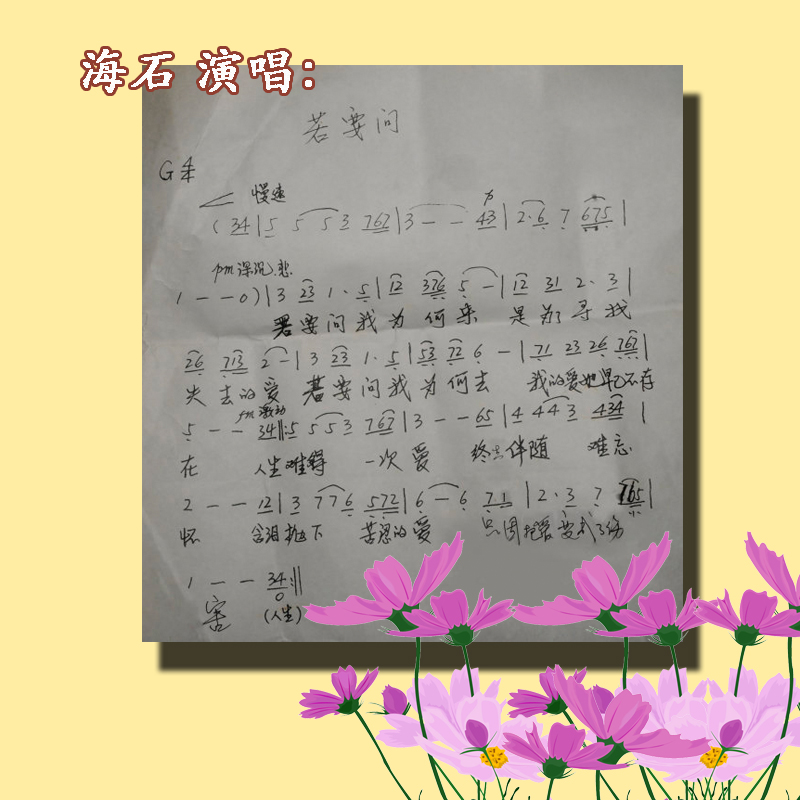 海石 演唱:
若要问
G 4/4
慢速
( 34 | 5 5 5 3 767 | 3 - - 43 | 2·6 7 675 |
pm 深沉、悲
1 - - 0) | 3 23 1·5 | 12 376 5 - | 12 31 2·3 |
若要问我为何来 是为了寻找
26 713 2 - | 3 23 1·5 | 53 72 6 - | 71 23 26 767 |
失去的爱 若要问我为何去 我的爱她早已不在
fm 激动
5 - - 34 ‖: 5 5 5 3 767 | 3 - - 65 | 4 4 4 3 434 |
在 人生难得 一次爱 终生伴随 难忘
2 - - 12 | 3 7 7 6 572 | 6 - 6 71 | 2·3 7 765 |
怀 含泪抛下 苦恩的爱 只因把爱变成了伤
1 - - 34 :‖
0
害 (人生)